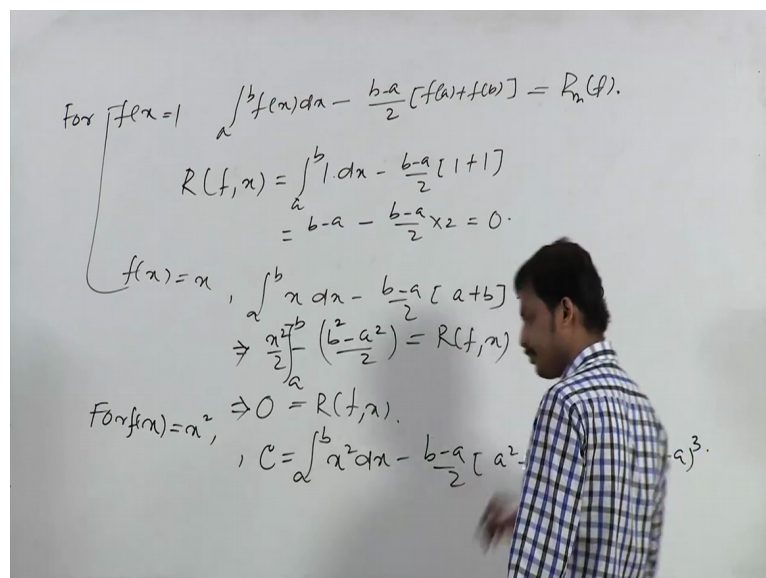 For f(x = 1 ∫_a^b f(x) dx − b-a/2 [f(a)+f(b)] = R_n(f).
R(f, x) = ∫_a^b 1. dx − b-a/2 [1+1]
= b-a − b-a/2 × 2 = 0.
f(x) = x , ∫_a^b x dx − b-a/2 [a+b]
⇒ x²/2]_a^b − (b²-a²/2) = R(f, x)
⇒ 0 = R(f, x).
For f(x) = x²,
, C = ∫_a^b x² dx − b-a/2 [a² - a)³.